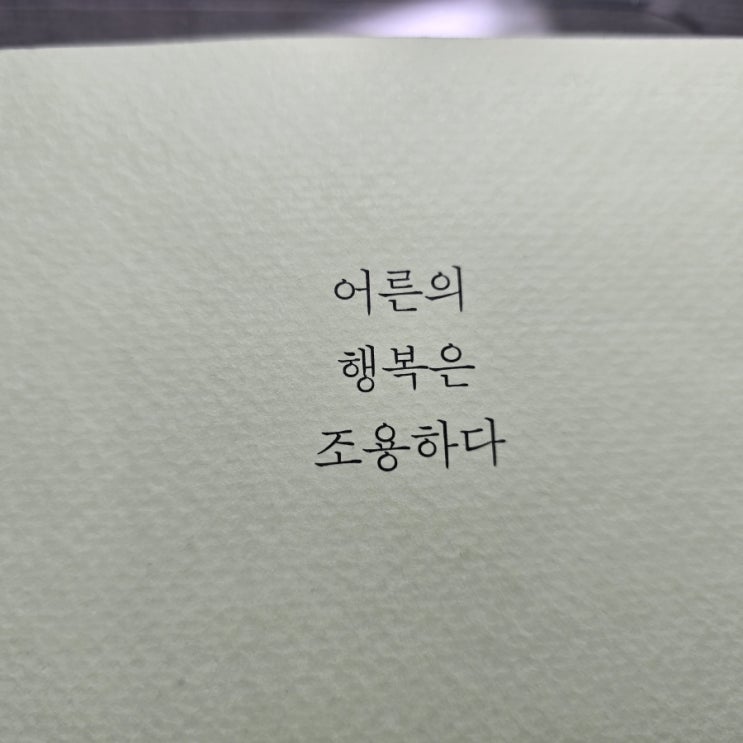 어른의
행복은
조용하다